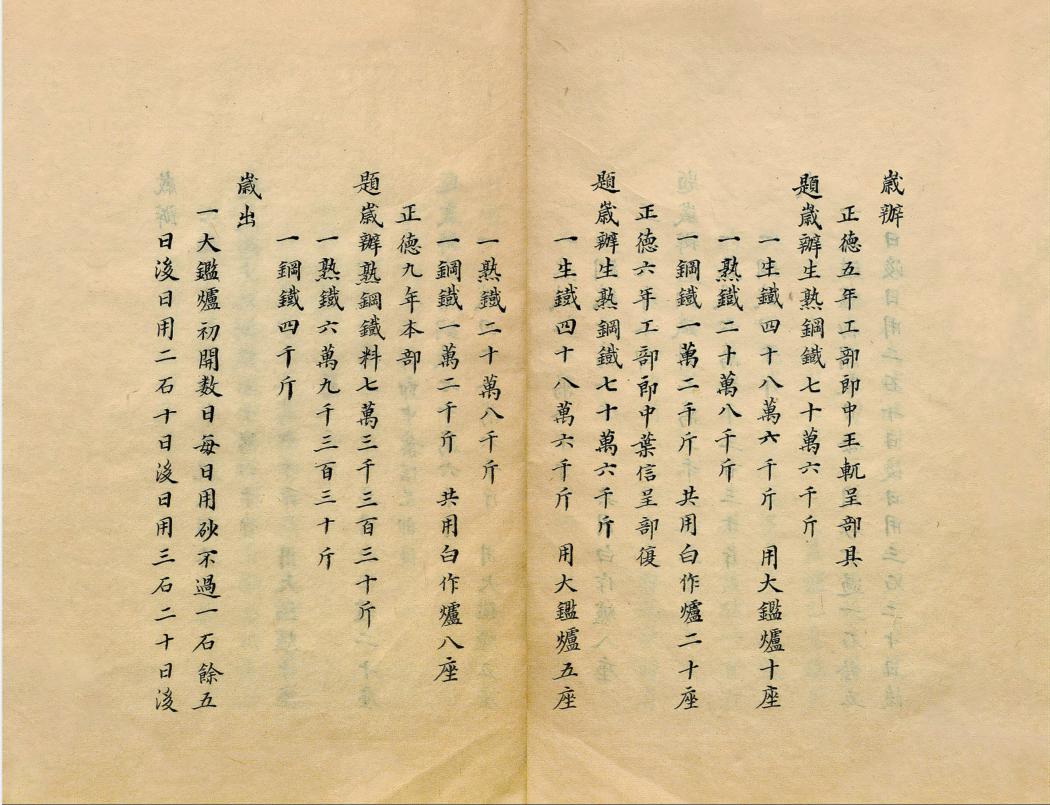 歲辦
正德五年工部郎中王軏呈部具
題歲辦生熟鋼鐵七十萬六千斤
一生鐵四十八萬六千斤 用大鑑爐十座
一熟鐵二十萬八千斤
一鋼鐵一萬二千斤共用白作爐二十座
正德六年工部郎中葉信呈部復
題歲辦生熟鋼鐵七十萬六千斤
一生鐵四十八萬六千斤 用大鑑爐五座
一熟鐵二十萬八千斤
一鋼鐵一萬二千斤共用白作爐八座
正德九年本部
題歲辦熟鋼鐵料七萬三千三百三十斤
一熟鐵六萬九千三百三十斤
一鋼鐵四千斤
歲出
一大鑑爐初開数日每日用砂不過一石餘五
日後日用二石十日後日用三石二十日後